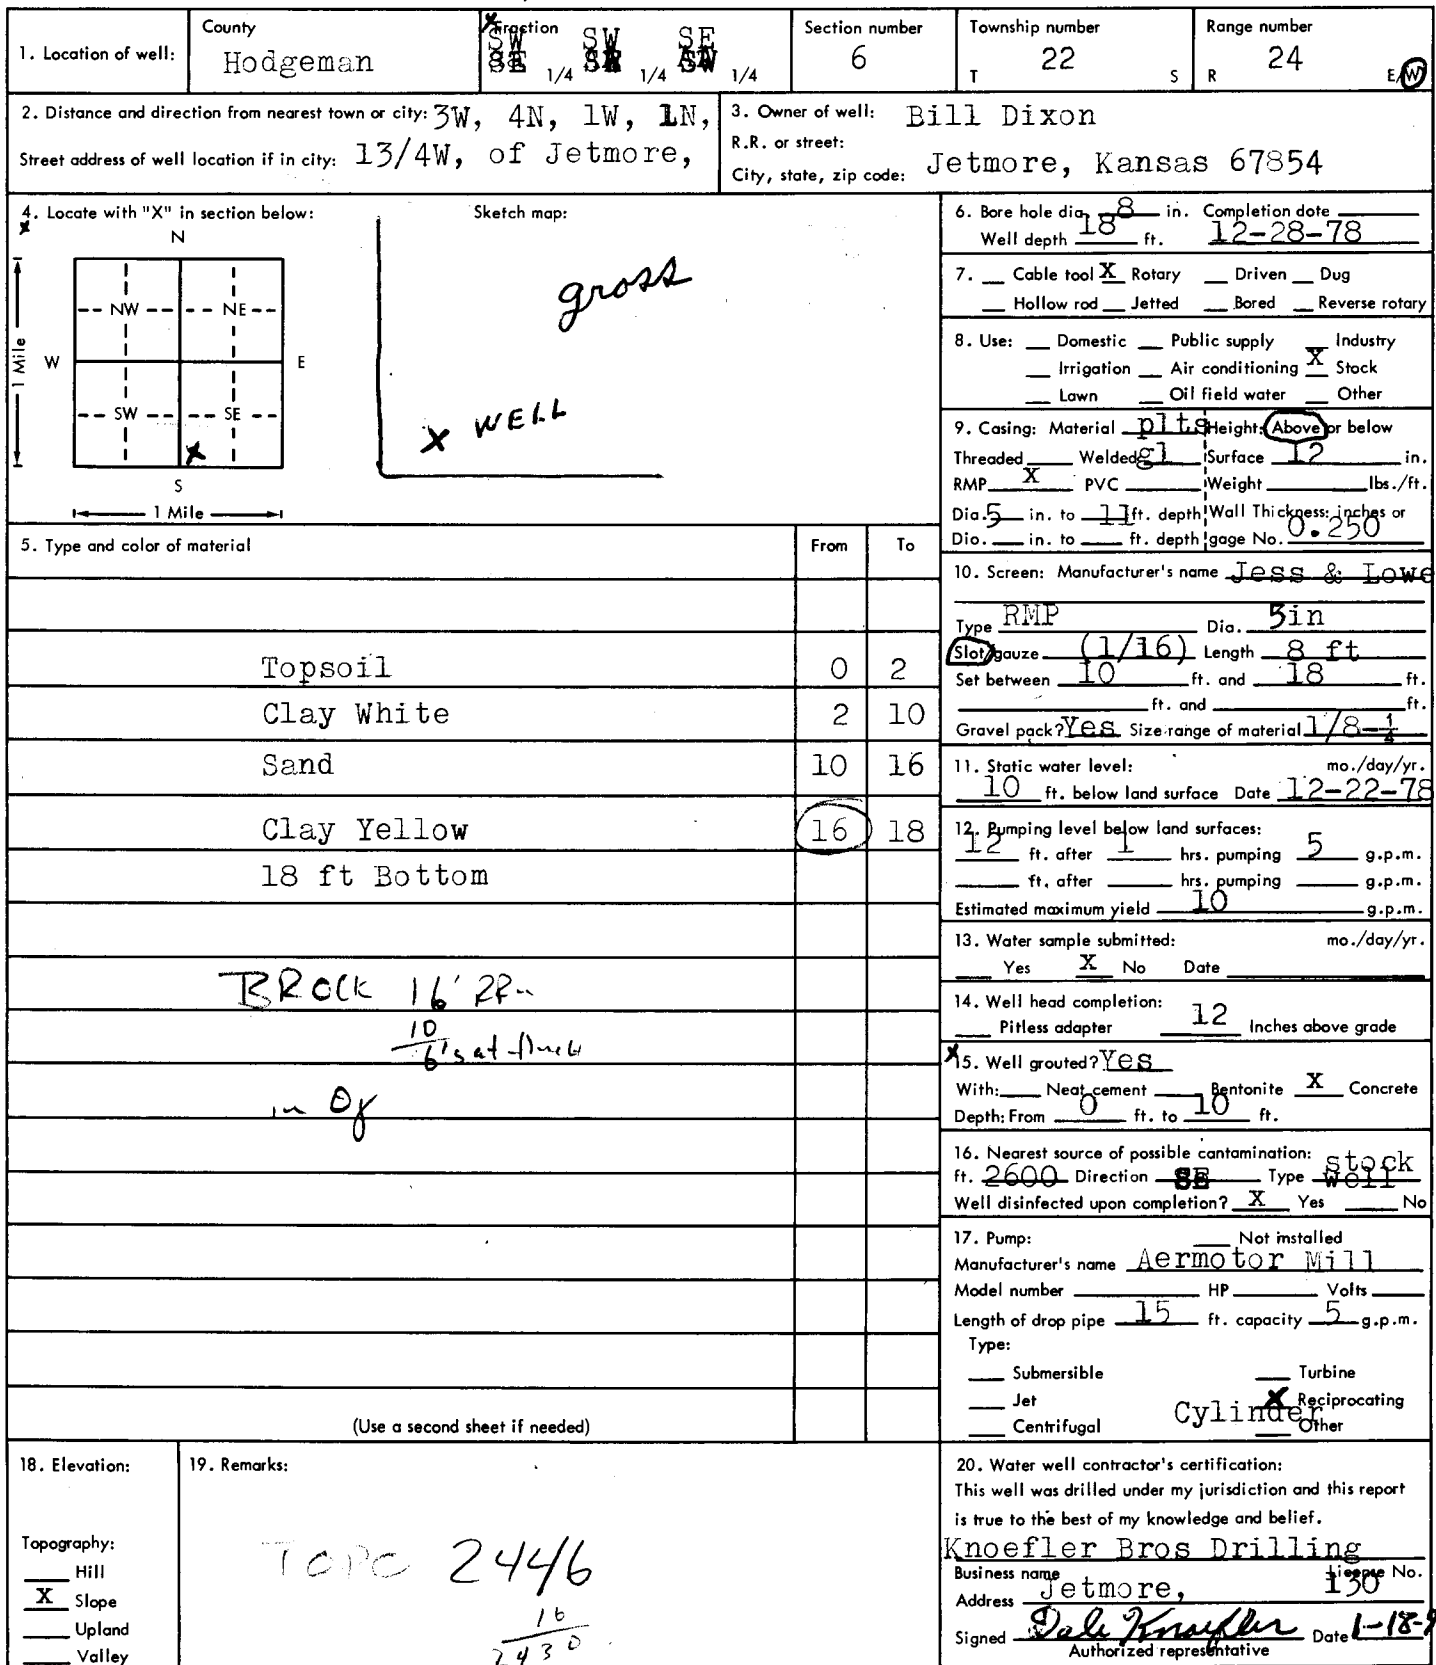 1. Location of well:
County
Hodgeman
Fraction
SW SW SE
1/4 1/4 1/4
Section number
6
Township number
T 22 S
Range number
R 24 E/W
2. Distance and direction from nearest town or city: 3W, 4N, 1W, 1N,
Street address of well location if in city: 13/4W, of Jetmore,
3. Owner of well: Bill Dixon
R.R. or street:
City, state, zip code: Jetmore, Kansas 67854
4. Locate with "X" in section below:
N
NW NE
W E
SW SE
X
S
1 Mile
1 Mile
Sketch map:
gross
X WELL
5. Type and color of material From To
Topsoil 0 2
Clay White 2 10
Sand 10 16
Clay Yellow 16 18
18 ft Bottom
BROCK 16'
10
6'
in
(Use a second sheet if needed)
6. Bore hole dia. 8 in. Completion date
Well depth 18 ft. 12-28-78
7. Cable tool X Rotary Driven Dug
Hollow rod Jetted Bored Reverse rotary
8. Use: Domestic Public supply Industry
Irrigation Air conditioning X Stock
Lawn Oil field water Other
9. Casing: Material plts Height: Above or below
Threaded Welded gl Surface 12 in.
RMP X PVC Weight lbs./ft.
Dia. 5 in. to 11 ft. depth Wall Thickness: inches or
Dia. in. to ft. depth gage No. 0.250
10. Screen: Manufacturer's name Jess & Lowe
Type RMP Dia. 5in
Slot/gauze (1/16) Length 8 ft
Set between 10 ft. and 18 ft.
ft. and ft.
Gravel pack? Yes Size range of material 1/8-1/4
11. Static water level: mo./day/yr.
10 ft. below land surface Date 12-22-78
12. Pumping level below land surfaces:
12 ft. after 1 hrs. pumping 5 g.p.m.
ft. after hrs. pumping g.p.m.
Estimated maximum yield 10 g.p.m.
13. Water sample submitted: mo./day/yr.
Yes X No Date
14. Well head completion:
Pitless adapter 12 Inches above grade
15. Well grouted? Yes
With: Neat cement Bentonite X Concrete
Depth: From 0 ft. to 10 ft.
16. Nearest source of possible contamination: stock
ft. 2600 Direction SE Type well
Well disinfected upon completion? X Yes No
17. Pump: Not installed
Manufacturer's name Aermotor Mill
Model number HP Volts
Length of drop pipe 15 ft. capacity 5 g.p.m.
Type:
Submersible Turbine
Jet X Reciprocating
Centrifugal Cylinder Other
18. Elevation:
Topography:
Hill
X Slope
Upland
Valley
19. Remarks:
TOPO 2446
16
2430
20. Water well contractor's certification:
This well was drilled under my jurisdiction and this report
is true to the best of my knowledge and belief.
Knoefler Bros Drilling
Business name License No.
Address Jetmore, 130
Signed Dale Knoefler Date 1-18-
Authorized representative